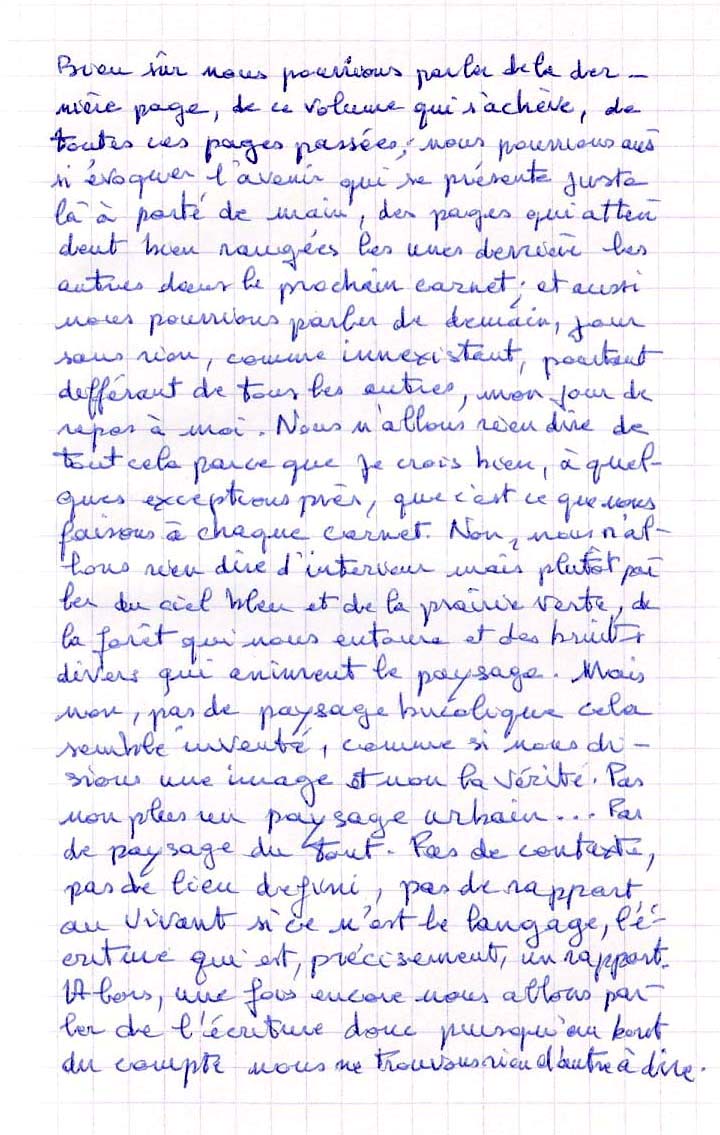 Bien sûr nous pourrions parler de la der-
nière page, de ce volume qui s'achève, de
toutes ces pages passées, nous pourrions aus
si évoquer l'avenir qui se présente juste
là à porté de main, des pages qui atten
dent bien rangées les unes derrière les
autres dans le prochain carnet; et aussi
nous pourrions parler de demain, jour
sans rien, comme innexistant, pourtant
defférant de tous les autres, mon jour de
repos à moi. Nous n'allons rien dire de
tout cela parce que je crois bien, à quel-
ques exceptions près, que c'est ce que nous
faisons à chaque carnet. Non, nous n'al-
lons rien dire d'interieur mais plutôt par
ler du ciel bleu et de la prairie verte, de
la forêt qui nous entoure et des bruits
divers qui animent le paysage. Mais
non, pas de paysage bucolique cela
semble inventé, comme si nous di-
sions une image et non la vérité. Pas
non plus un paysage urbain... Pas
de paysage du tout. Pas de contexte,
pas de lieu defini, pas de rapport
au vivant si ce n'est le langage, l'é-
criture qui est, précisement, un rapport.
Alors, une fois encore nous allons par-
ler de l'écriture donc puisqu'au bout
du compte nous ne trouvons rien d'autre à dire.